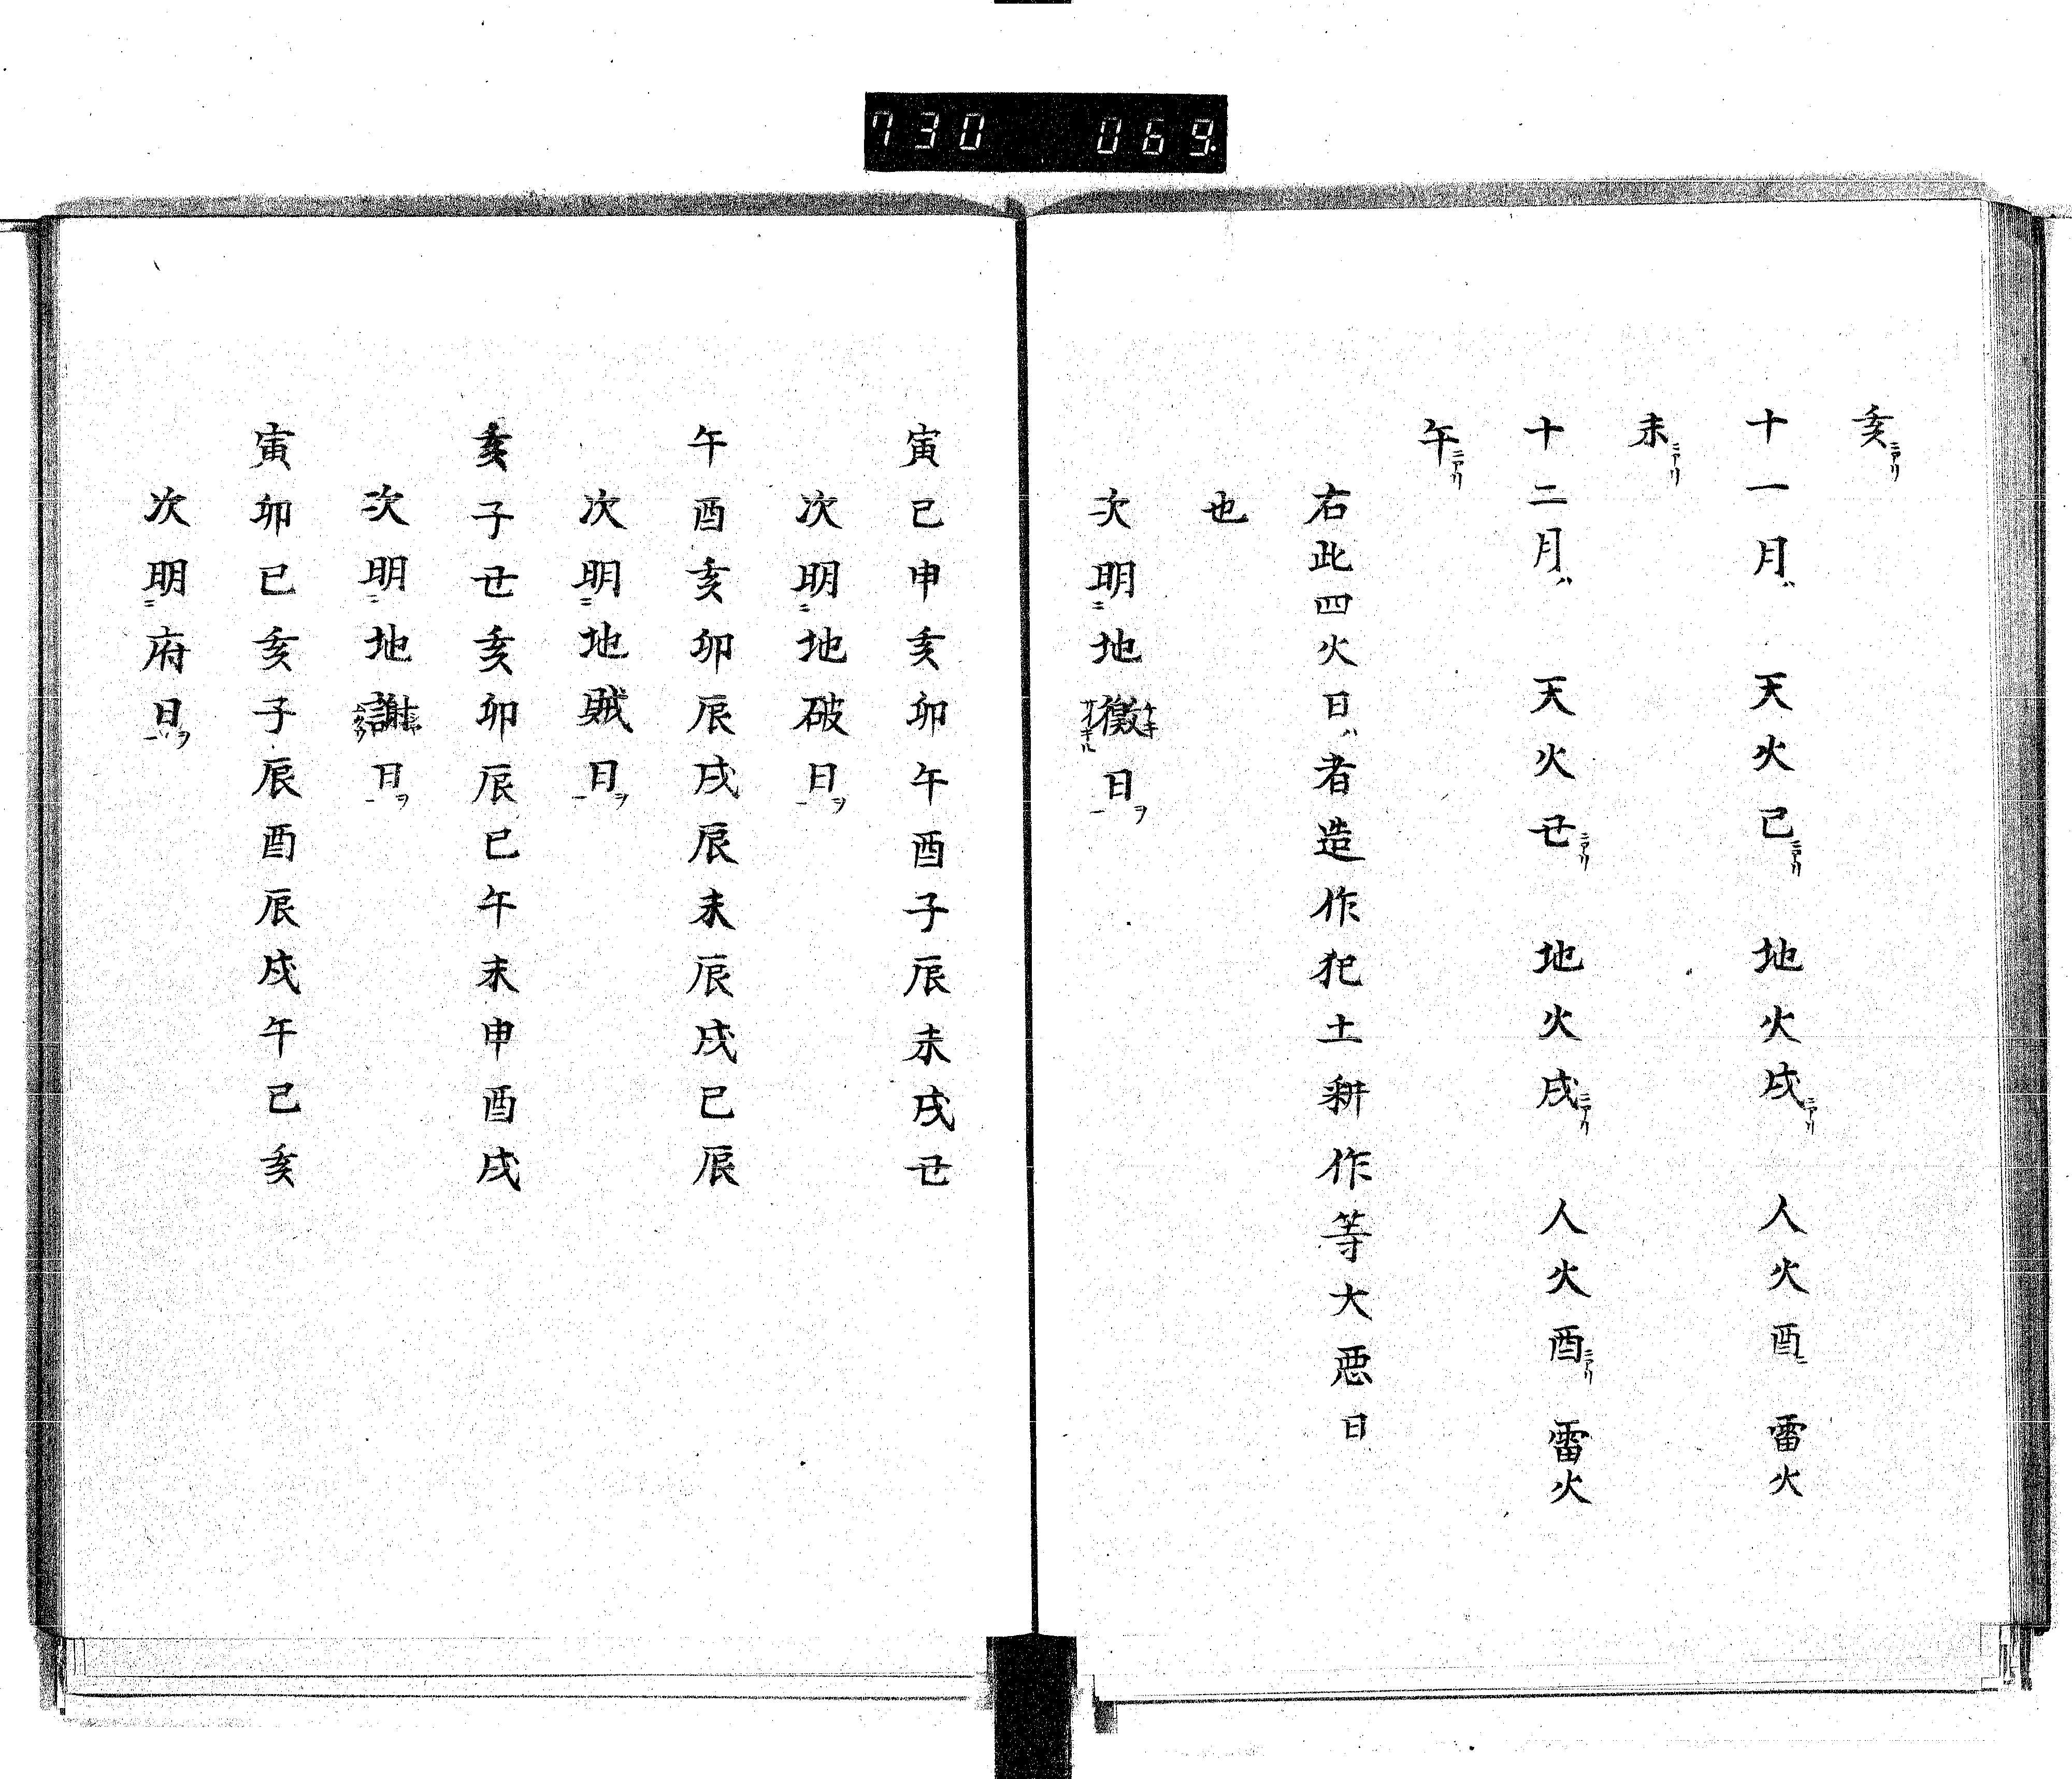 730 069
亥ニアリ
十一月ハ 天火巳ニアリ 地火戌ニアリ 人火酉ニ 雷火
未ニアリ
十二月ハ 天火丑ニアリ 地火戌ニアリ 人火酉ニアリ 雷火
午ニアリ
右此四火日ハ者造作犯土耕作等大悪日
也
次明ニ地徴日ヲ一
寅巳申亥卯午酉子辰未戌丑
次明ニ地破日ヲ一
午酉亥卯辰戌辰未辰戌巳辰
次明ニ地賊日ヲ一
亥子丑亥卯辰巳午未申酉戌
次明ニ地謝日ヲ一
寅卯巳亥子辰酉辰戌午巳亥
次明ニ府日ヲ一